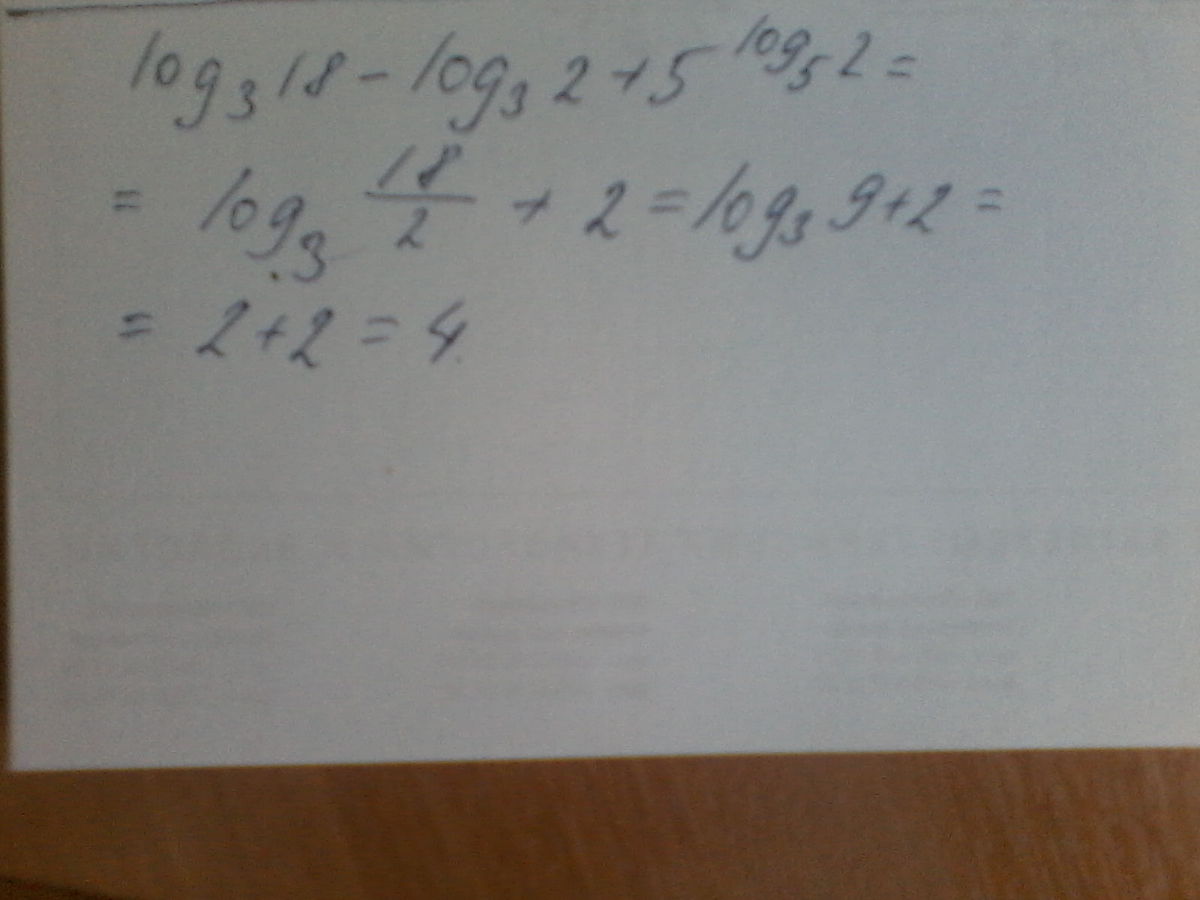 log₃ 18 - log₃ 2 + 5^(log₅ 2) =
= log₃ 18/2 + 2 = log₃ 9 + 2 =
= 2 + 2 = 4.